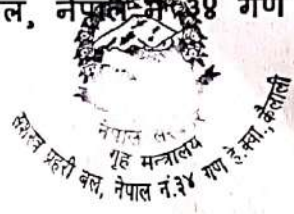 ल, नेपाल नं.३४ गण
नेपाल सरकार
गृह मन्त्रालय
सशस्त्र प्रहरी बल, नेपाल नं.३४ गण हे.क्वा., कैलाली